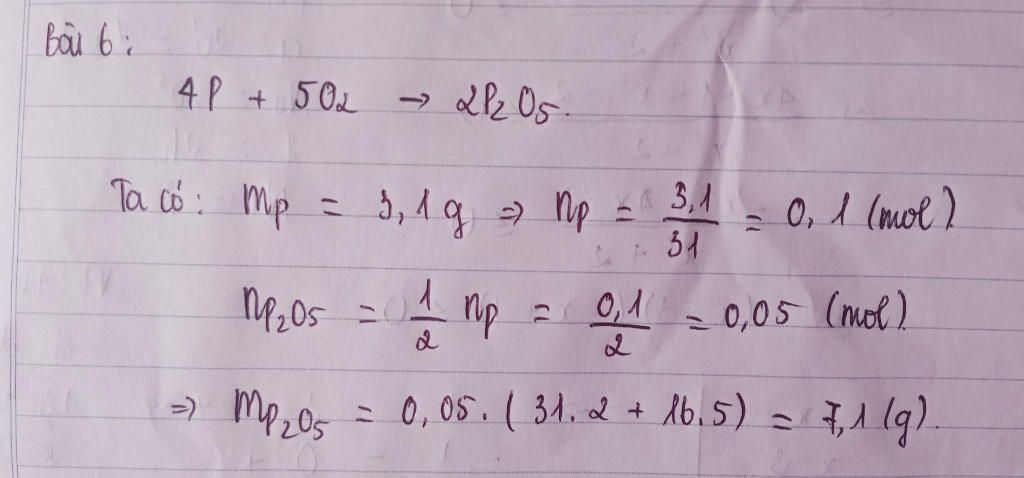 Bài 6:
4P + 5O₂ → 2P₂O₅.
Ta có: mp = 3,1g ⇒ np = 3,1/31 = 0,1 (mol)
np₂O₅ = 1/2 np = 0,1/2 = 0,05 (mol)
⇒ mp₂O₅ = 0,05.(31.2 + 16.5) = 7,1 (g).